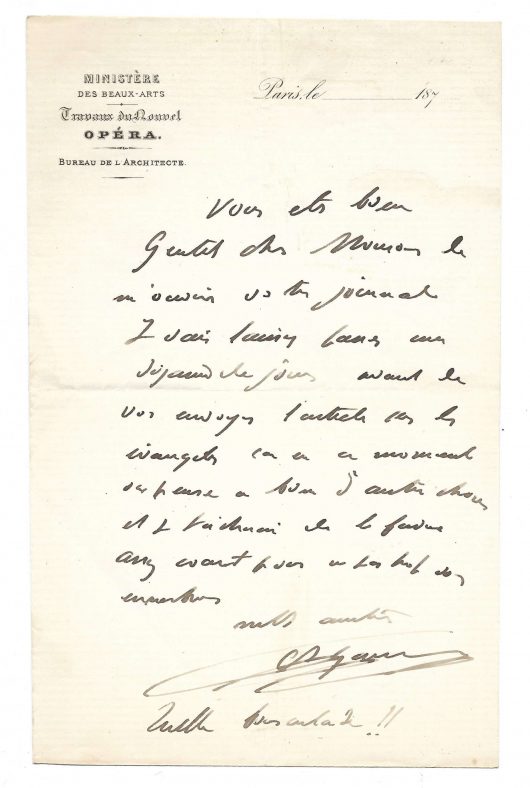 MINISTÈRE
DES BEAUX-ARTS
Travaux du Nouvel
OPÉRA.
BUREAU DE L'ARCHITECTE.
Paris, le 187
Vous etes bien
Gentil cher Monsieur de
m'ouvrir votre journal
Je vais laisser passer une
dizaine de jours avant de
vos envoyer l'article car les
évangiles ca en ce moment
on pense a bien d'autres choses
et je tacherai de le faire
assez court pour ne pas trop vos
mille amitiés
Quelle !!